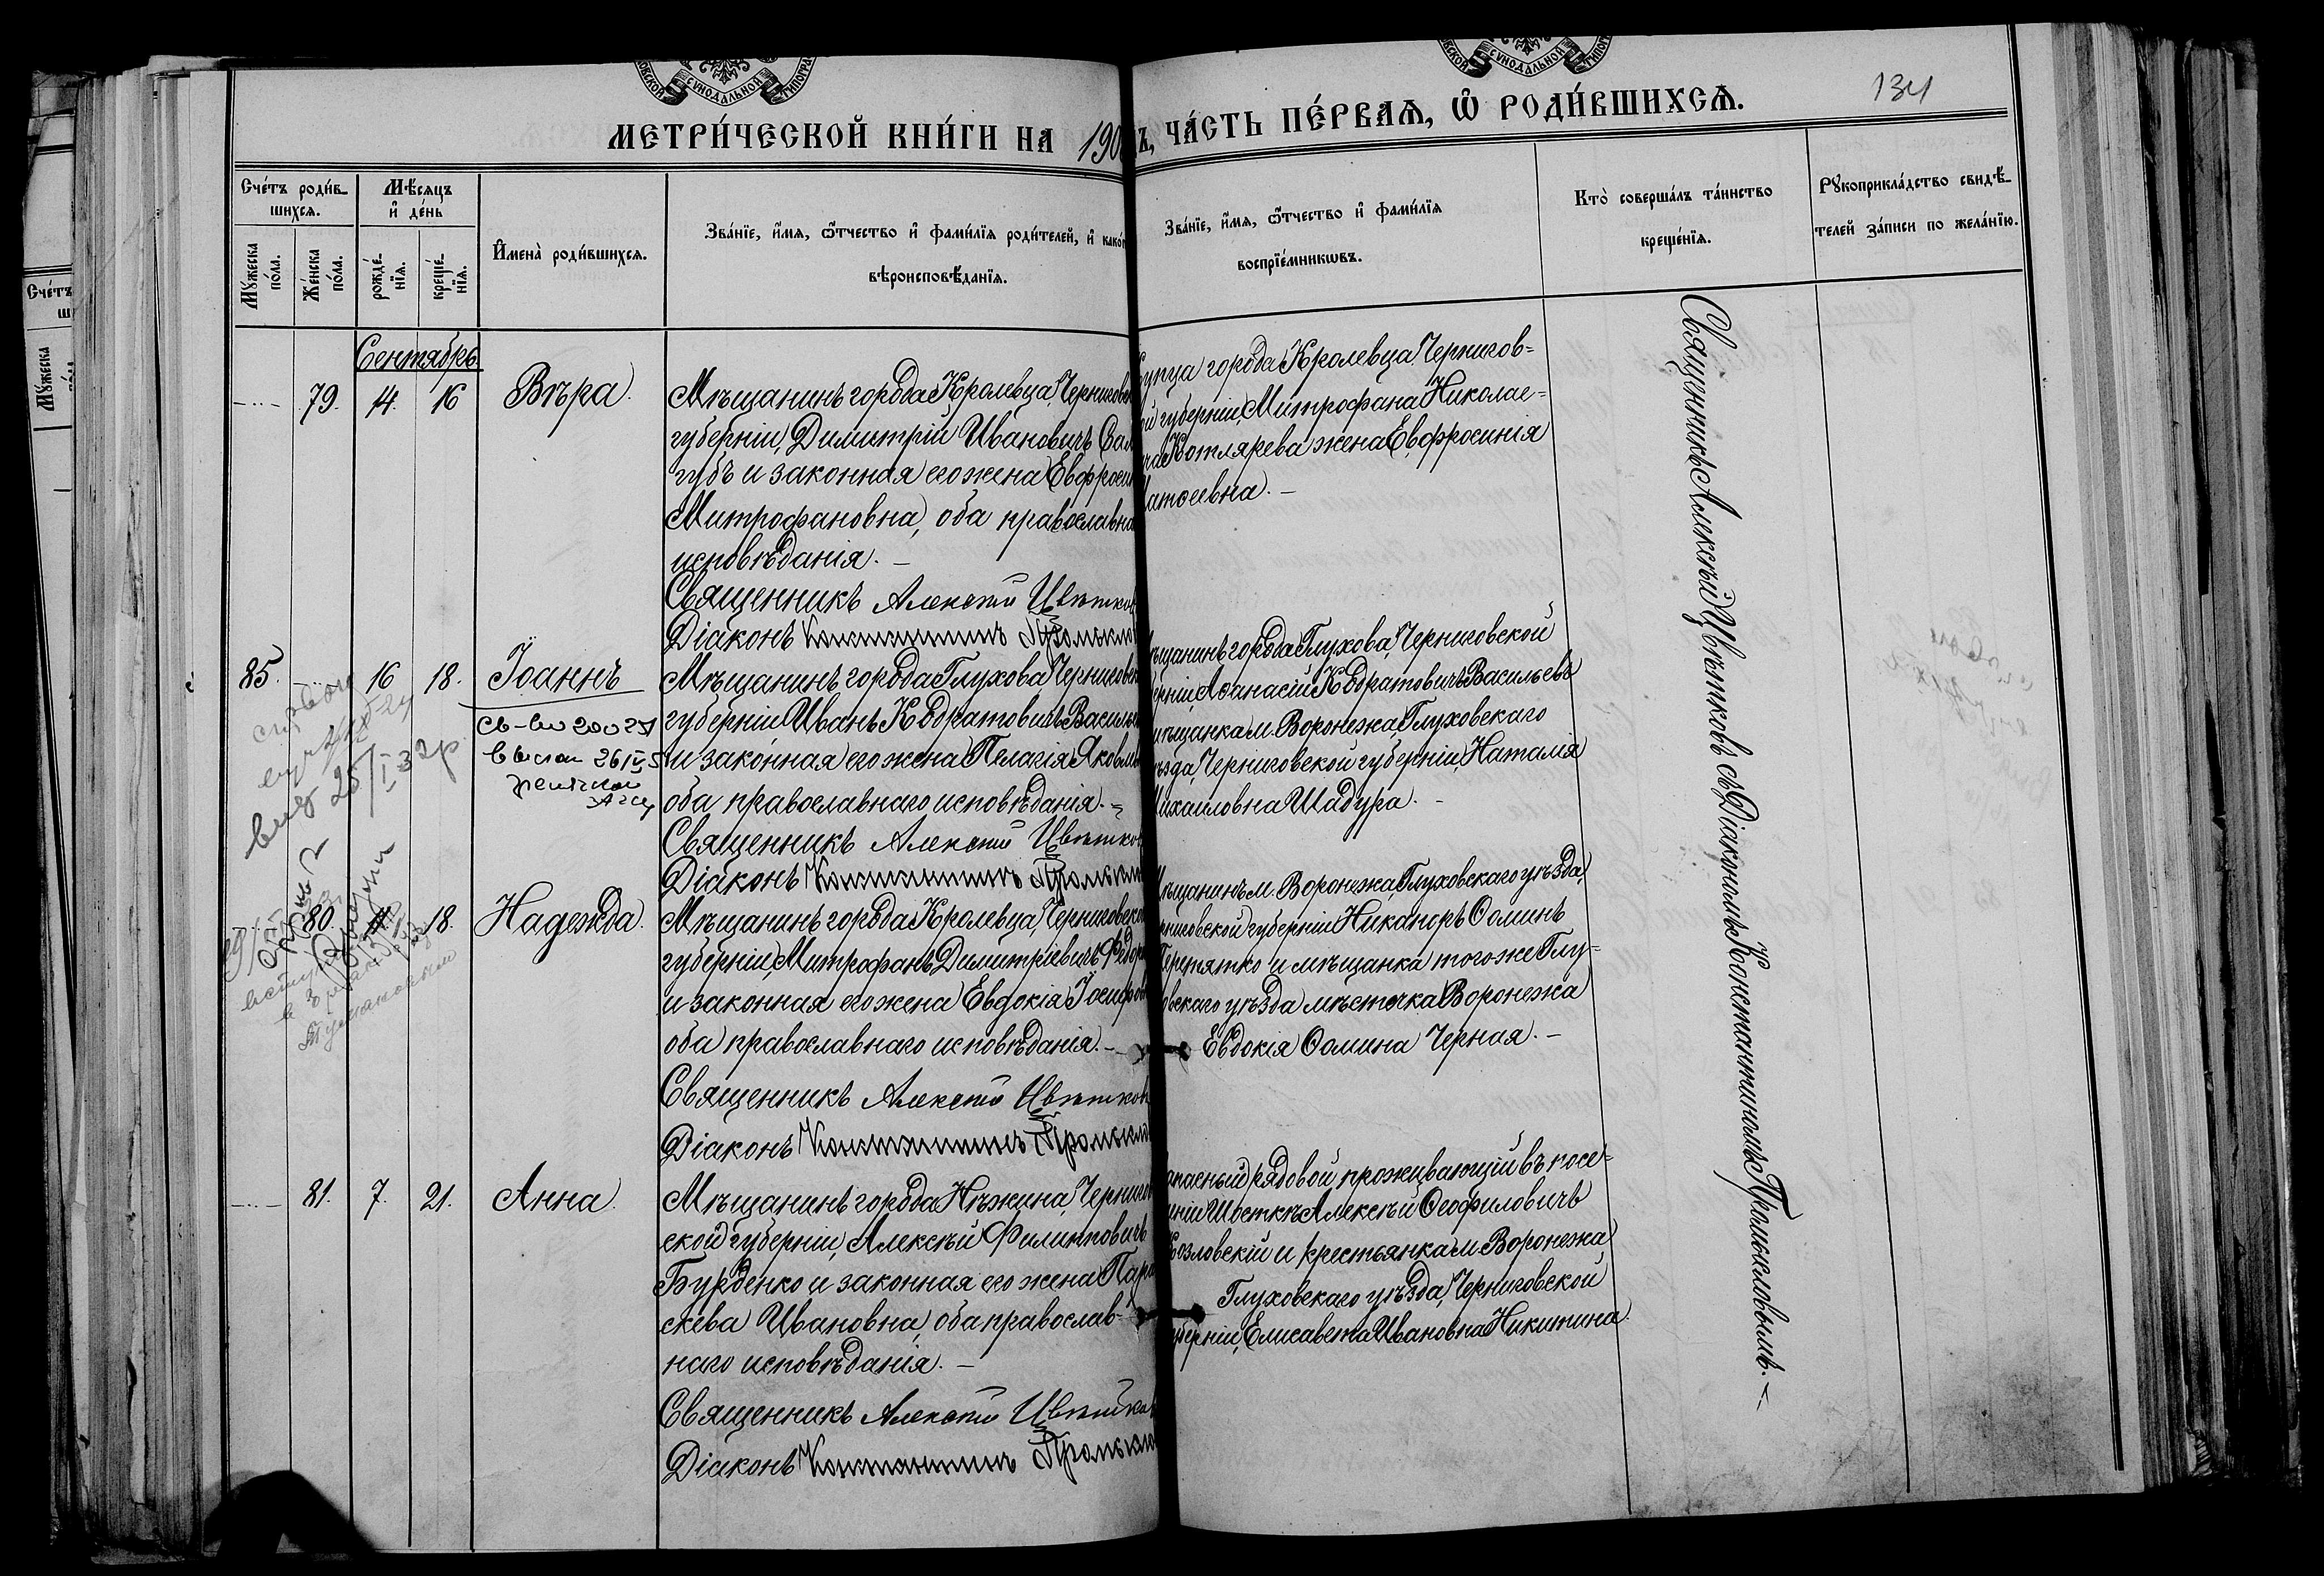 МОСКОВСКОЙ СѴНОДАЛЬНОЙ ТИПОГРА
СКОЙ СѴНОДАЛЬНОЙ ТИПОГР
134
МЕТРИ́ЧЕСКОЙ КНИ́ГИ НА 190
Ъ, ЧА́СТЬ ПЕ́РВАѦ, Ѡ҆ РОДИ́ВШИХСѦ.
Счéтъ роди́в-
шихсѧ.
Мꙋ́жеска
по́ла.
Же́нска
по́ла.
Мѣ́сѧцъ
и҆ де́нь
рожде́-
нїѧ.
креще́-
нїѧ.
И҆мена̀ роди́вшихсѧ.
Зва́нїе, и҆́мѧ, ѻ҆́тчество и҆ фами́лїѧ роди́телей, и҆ како́г
вѣроисповѣ́данїѧ.
Зва́нїе, и҆́мѧ, ѻ҆́тчество и҆ фами́лїѧ
воспрїе́мникѡвъ.
Кто̀ соверша́лъ та́инство
креще́нїѧ.
Рꙋкоприкла́дство свидѣ́-
телей за́писи по жела́нїю.
Счéтъ
ш
Мꙋ́жеска
Сентябрь
79. 14. 16 Вѣра.
Мѣщанинъ города Кролевца, Черниговс
губерніи, Димитрій Ивановичъ Сал
губъ и законная его жена Евфроси
Митрофановна, оба православна
исповѣданія. —
Священникъ Алексѣй Цвѣтков
Діаконъ Константинъ
упца города Кролевца, Чернигов=
й губерніи, Митрофана Николае=
ча Котлярева жена Евфросинія
атѳеевна. —
85. 16 18. Іоаннъ
Мѣщанинъ города Глухова, Черниговск
губерніи Иванъ Кодратовичъ Василь
и законная его жена Пелагія Яковл
оба православнаго исповѣданія. —
Священникъ Алексѣй Цвѣтков
Діаконъ Константинъ
ѣщанинъ города Глухова, Черниговской
ерніи, Аѳанасій Кодратовичъ Васильевъ
мѣщанка м. Воронежа, Глуховскаго
ѣзда, Черниговской губерніи, Наталія
ихаиловна Шадура. —
25/I 32р
80. 18. Надежда.
Мѣщанинъ города Кролевца, Черниговско
губерніи, Митрофанъ Димитріевичъ Ѳедор
и законная его жена Евдокія Іосифов
оба православнаго исповѣданія. —
Священникъ Алексѣй Цвѣтков
Діаконъ Константинъ
ѣщанинъ м. Воронежа, Глуховскаго уѣзда,
рниговской губерніи Никаноръ Ѳоминъ
Перетятко и мѣщанка того же Глу=
овскаго уѣзда мѣстечка Воронежа
Евдокія Ѳомина Черная. —
81. 7. 21. Анна.
Мѣщанинъ города Нѣжина, Чернигов
ской губерніи, Алексѣй Филипповичъ
Бурденко и законная его жена Пара
скева Ивановна, оба православ-
наго исповѣданія. —
Священникъ Алексѣй Цвѣтков
Діаконъ Константинъ
апасный рядовой проживающій въ посе=
ніи Шосткѣ Алексѣй Ѳеофиловичъ
Козловскій и крестьянка м. Воронежа
Глуховскаго уѣзда, Черниговской
уберніи, Елисавета Ивановна Никитина.
Священникъ Алексѣй Цвѣтковъ съ Діакономъ Константиномъ